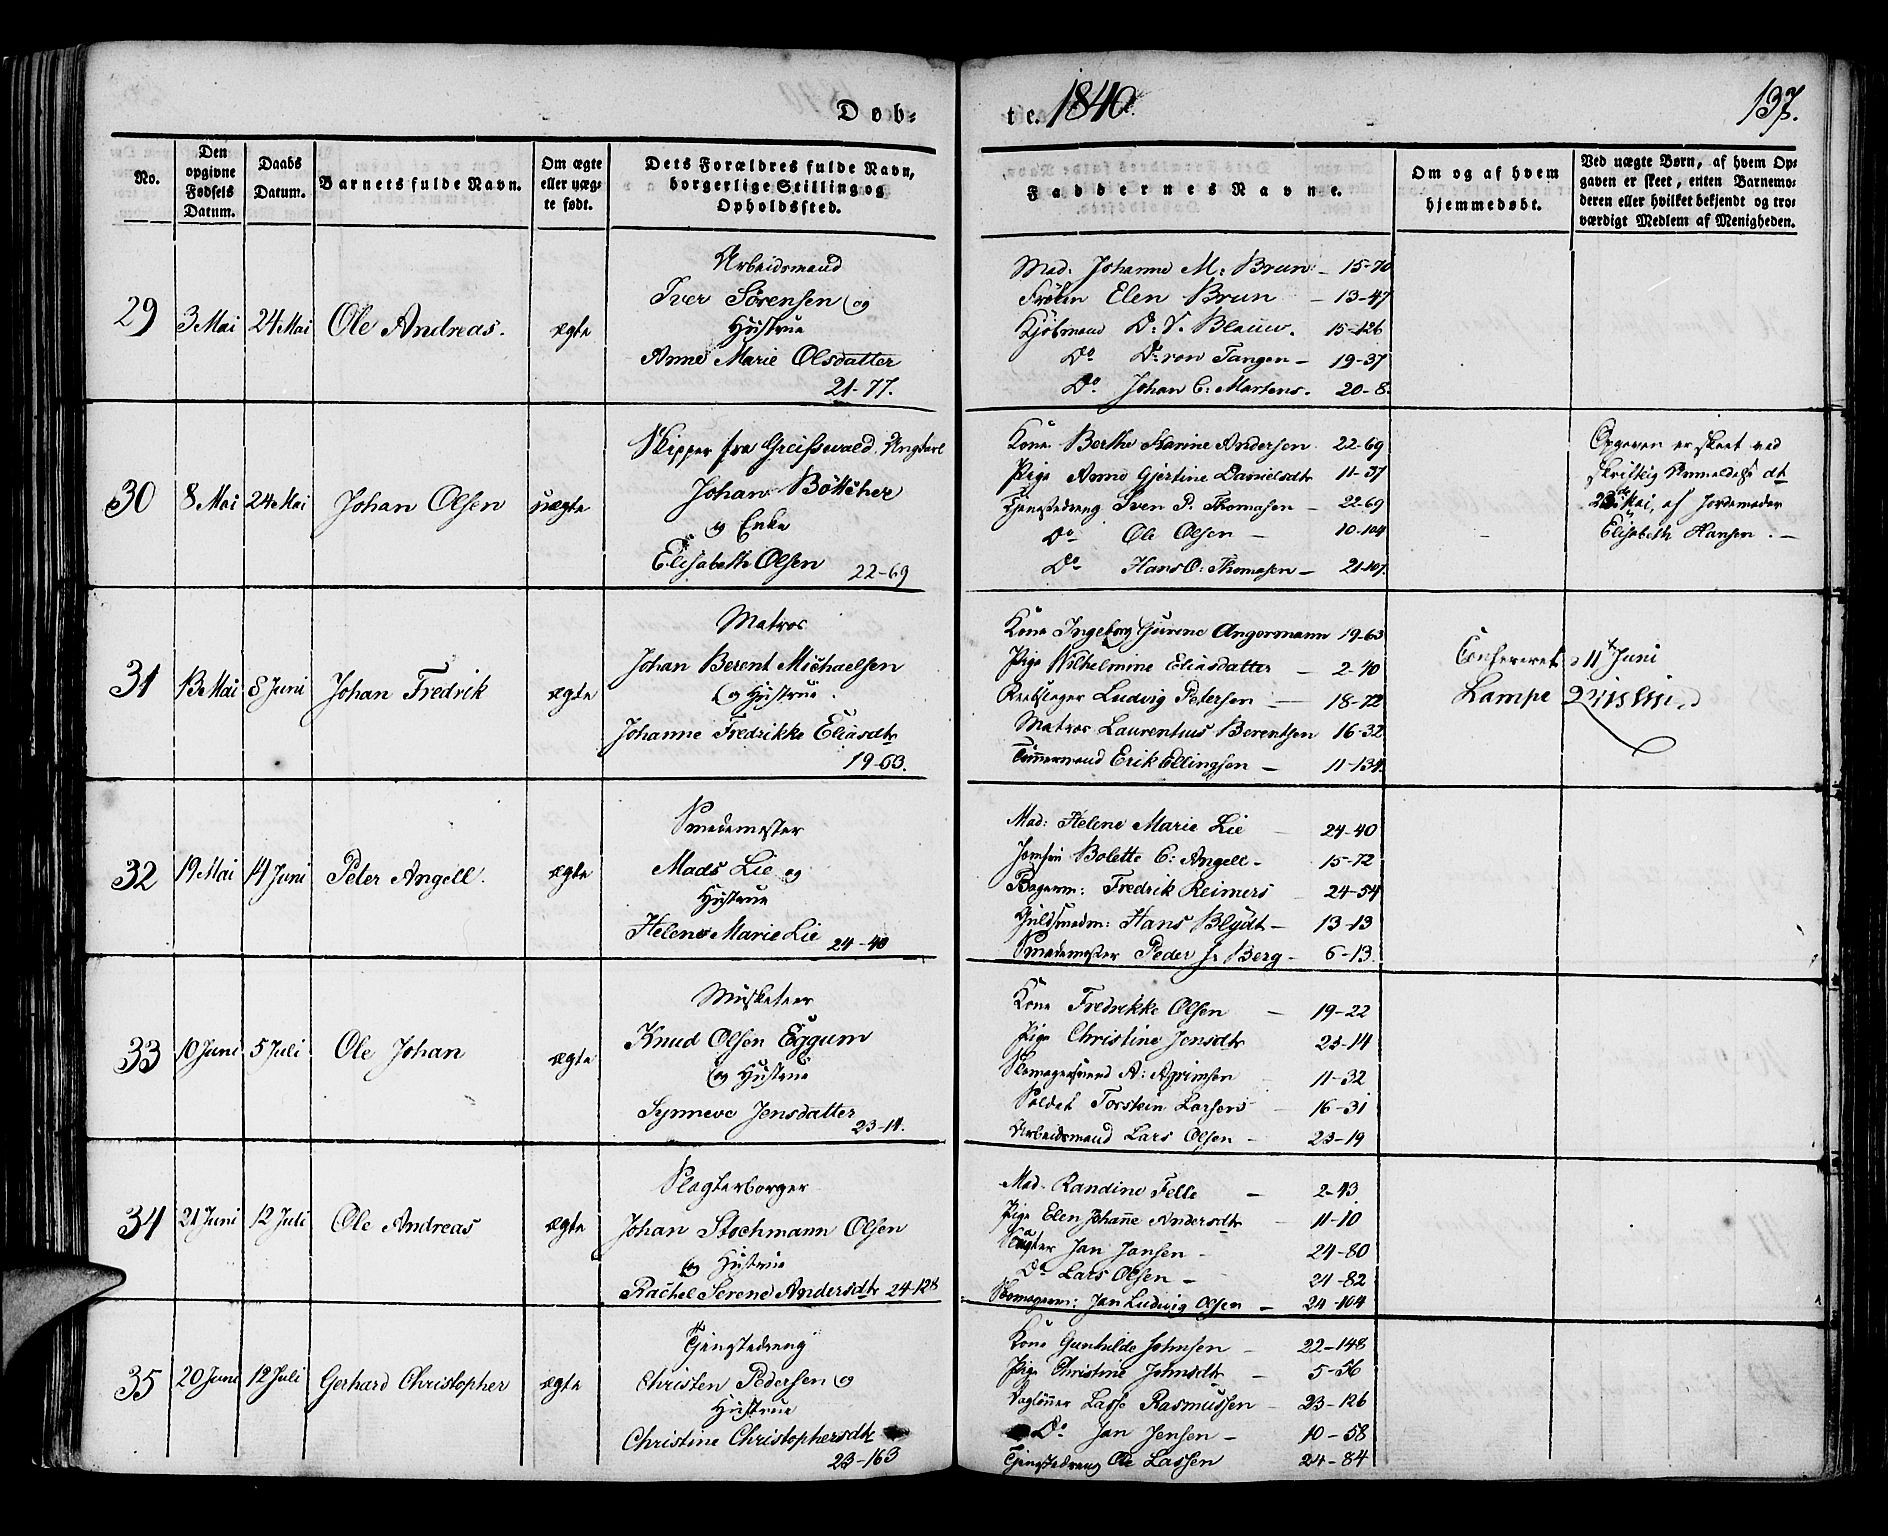 Døb-
te. 1840.
137.
No.
Den opgivne Fødsels Datum.
Daabs Datum.
Barnets fulde Navn.
Om ægte eller uægte født.
Dets Forældres fulde Navn, borgerlige Stilling og Opholdssted.
Faddernes Navne.
Om og af hvem hjemmedøbt.
Ved uægte Børn, af hvem Opgaven er skeet, enten Barnemoderen eller hvilket bekjendt og troværdigt Medlem af Menigheden.
29
3 Mai
24 Mai
Ole Andreas.
ægte
Arbeidsmand
Iver Sörensen og
Hustrue
Anne Marie Olsdatter
21-77.
Mad: Johanne M: Brun - 15-70
Frøken Elen Brun - 13-47
Kjöbmand D: V. Blauw. 15-126
Do D: von Tangen - 19-37
Do. Johan C: Martens. 20-8.
30
8 Mai
24 Mai
Johan Olsen
uægte
Skipper fra Greifswald, Ungkarl
Johan Böttcher
og Enke
Elisabeth Olsen 22-69
Kone Berthe Karine Andersen 22-69
Pige Anne Gjertine Danielsdtr 11-37
Tjenstedreng Sven P. Thomasen - 22-69
Do Ole Olsen - 10-104
Do Hans O: Thomasen - 21-107.
Opgaven er skeet ved
skriftlig Anmeldelse dt
23de Mai, af Jordemoder
Elisabeth Hansen. -
31
13 Mai
8 Juni
Johan Fredrik
ægte
Matros
Johan Berent Michaelsen
og Hustrue.
Johanne Fredrikke Eliasdtr
19-63.
Kone Ingeborg Gurene Angermann 19-63
Pige Wilhelmine Eliasdatter - 2-40
Rebslager Ludvig Petersen - 18-72
Matros Laurentius Berentsen 16-32
Tömmermand Erik Ellingsen - 11-134.
11t Juni
Lampe
32
19 Mai
14 Juni
Peter Angell.
ægte
Smedemester
Mads Lie og
Hustrue
Helene Marie Lie 24-40
Mad: Helene Marie Lie - 24-40
Jomfru Bolette C: Angell - 15-72
Bagerm: Fredrik Reimers 24-54
Guldsmedm: Hans Blydt - 13-13
Smedemester Peder J: Berg - 6-13.
33
10 Juni
5 Juli
Ole Johan
ægte
Musketeer
Knud Olsen Eggum
og Hustrue
Synneve Jensdatter
23-14.
Kone Fredrikke Olsen - 19-22
Pige Christine Jensdtr 23-14
Skomagersvend A: Agrimsen - 11-32
Soldat Torstein Larsen - 16-31
Arbeidsmand Lars Olsen - 23-19
34
21 Juni
12 Juli
Ole Andreas
ægte
Slagterborger
Johan Stochmann Olsen
og Hustrue
Rachel Serene Andersdtr 24-128
Mad. Randine Felle - 2-43.
Pige Elen Johanne Andersdtr - 11-10
Slagter Jan Jansen - 24-80
Do Lars Olsen - 21-82
Skomagerm: Jan Ludvig Olsen - 24-104
35
20 Juni
12 Juli
Gerhard Christopher
ægte
Tjenstedreng
Christen Pedersen og
Hustrue
Christine Christophersdtr
23-163
Kone Gunhilde Johnsen - 22-148
Pige Christine Johnsdtr - 5-56
Daglönner Lasse Rasmussen - 23-126
Do Jan Jensen - 10-58
Tjenstedreng Ole Lassen 24-84